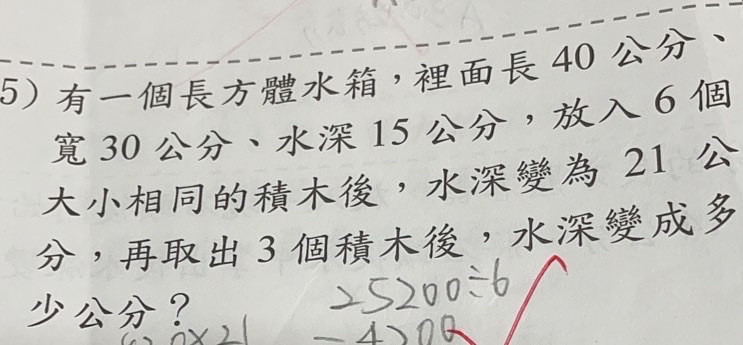 5) 有一個長方體水箱，裡面長 40 公分、
寬 30 公分、水深 15 公分，放入 6 個
大小相同的積木後，水深變為 21 公
分，再取出 3 個積木後，水深變成多
少公分？
25200÷6
=4200